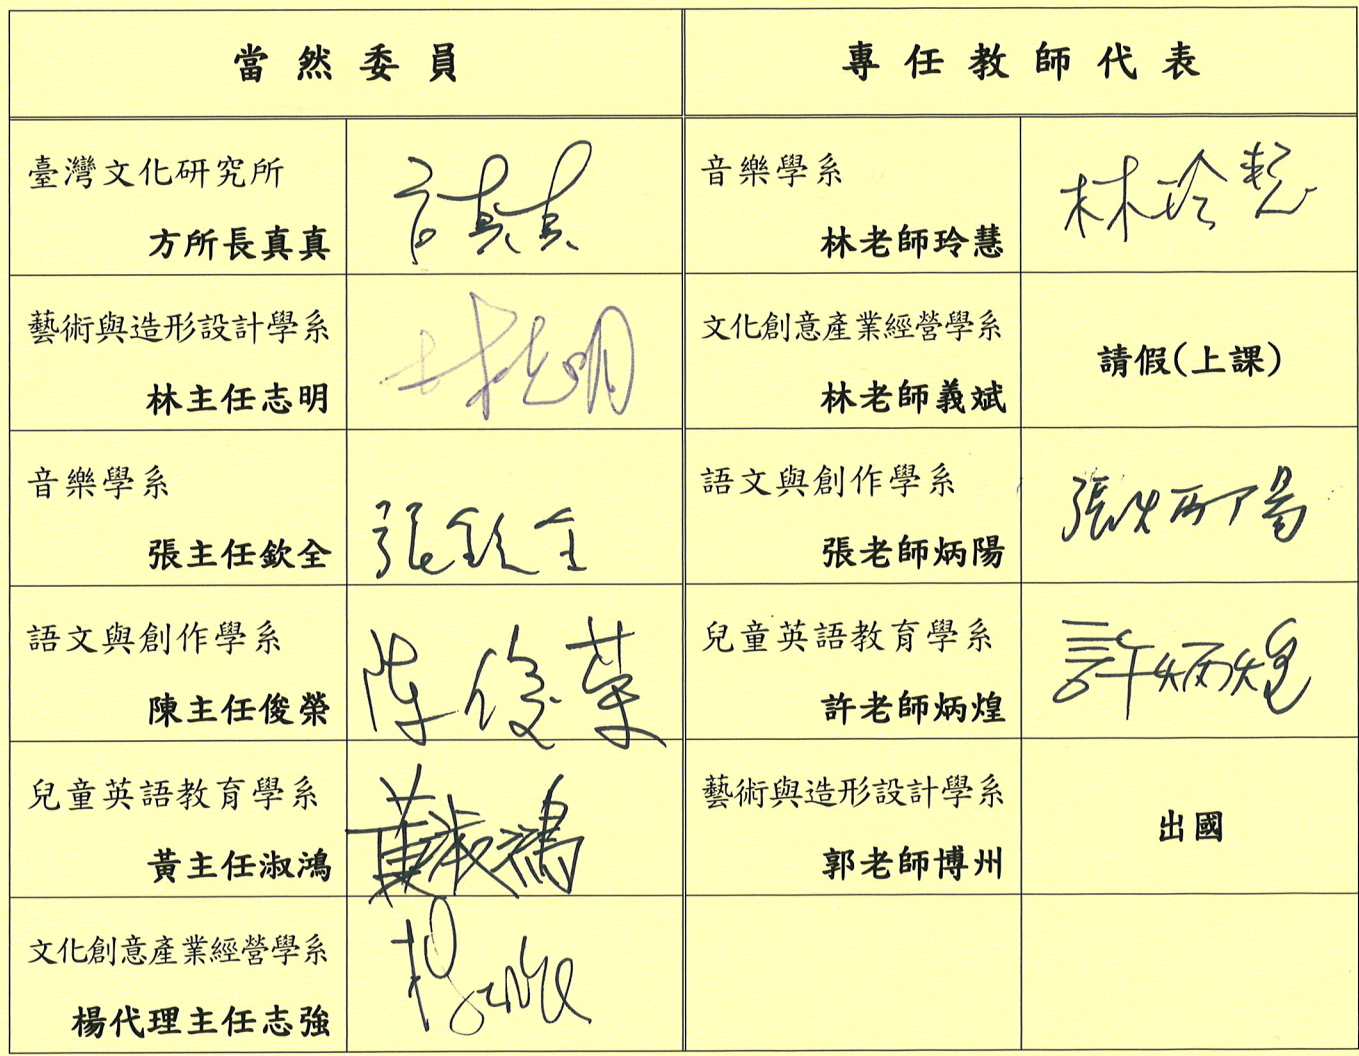 當然委員
專任教師代表
臺灣文化研究所
方所長真真
方真真
音樂學系
林老師玲慧
林玲慧
藝術與造形設計學系
林主任志明
林志明
文化創意產業經營學系
林老師義斌
請假(上課)
音樂學系
張主任欽全
張欽全
語文與創作學系
張老師炳陽
張炳陽
語文與創作學系
陳主任俊榮
陳俊榮
兒童英語教育學系
許老師炳煌
許炳煌
兒童英語教育學系
黃主任淑鴻
黃淑鴻
藝術與造形設計學系
郭老師博州
出國
文化創意產業經營學系
楊代理主任志強
楊志強